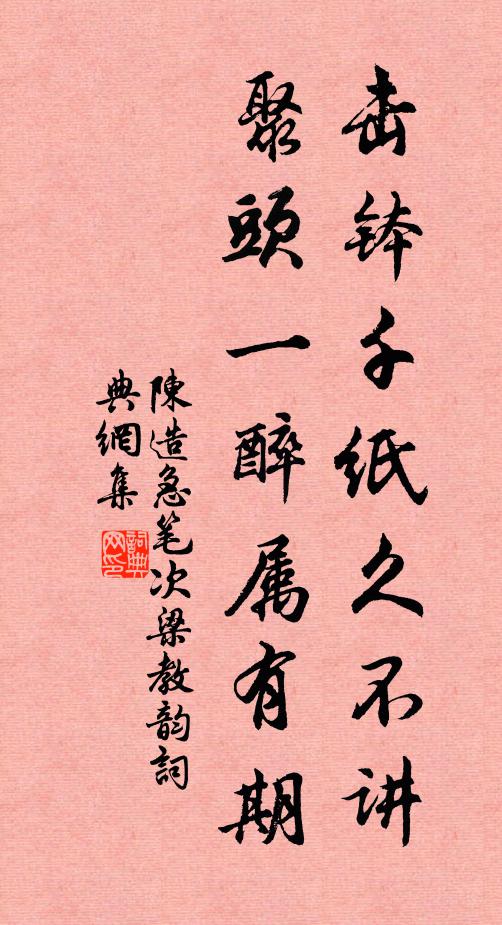 击钵千纸久不讲
聚頭一醉属有期
陳造急笔次梁教韵詞
典網集
詞典网印